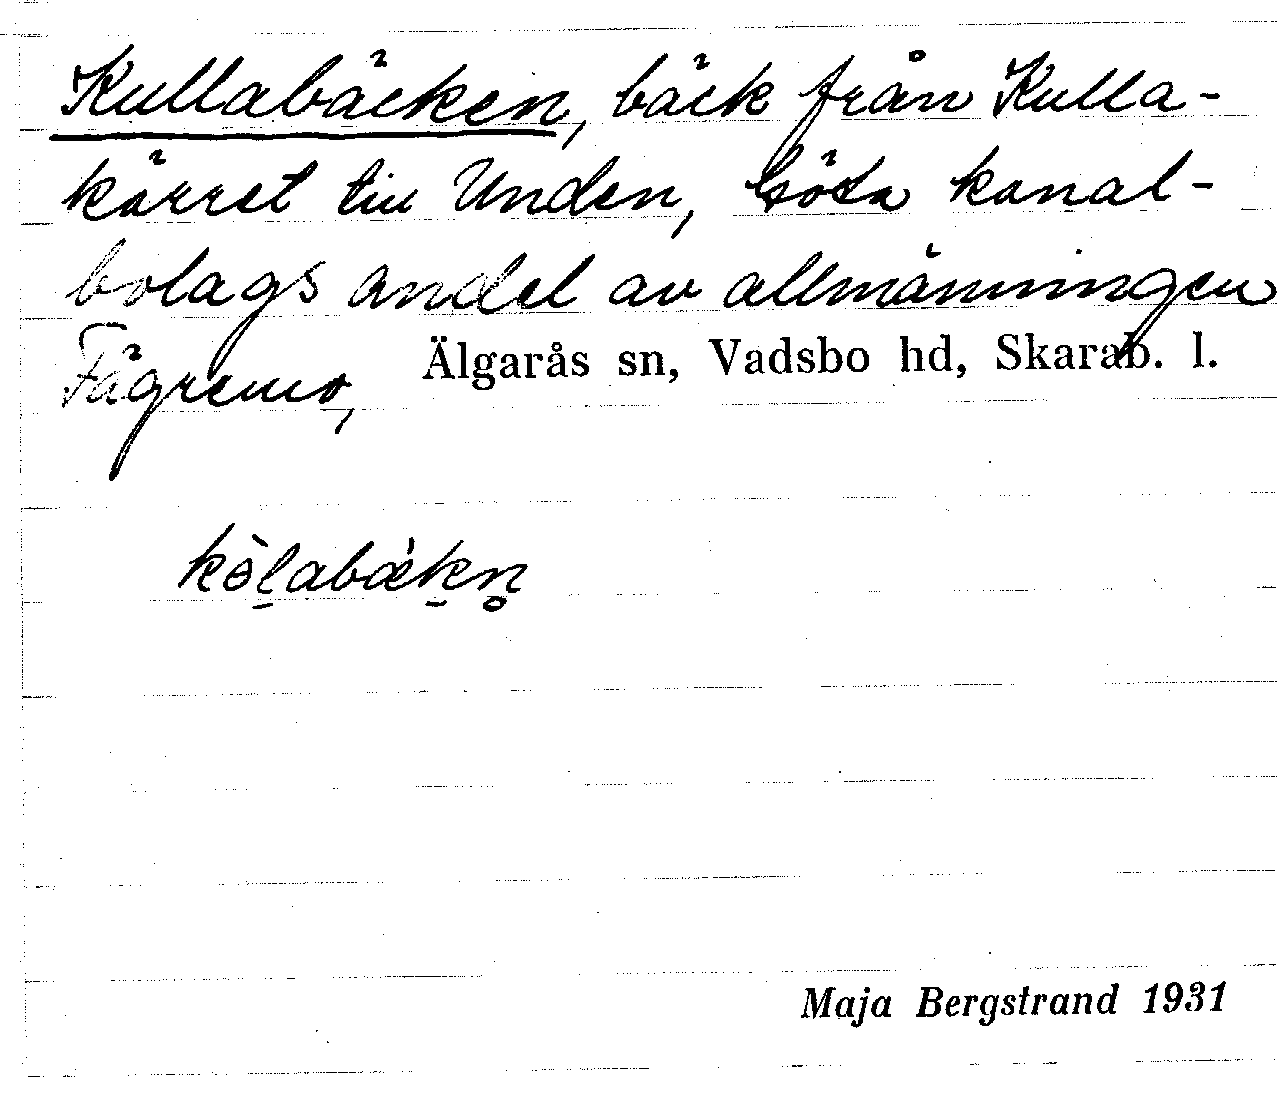 Kullabäcken, bäck från Kulla-
kärret till Unden, Göta kanal-
bolags andel av allmänningen
Fägremo, Älgarås sn, Vadsbo hd, Skarab. l.
kòl̠abæ̀k̠n̥
Maja Bergstrand 1931